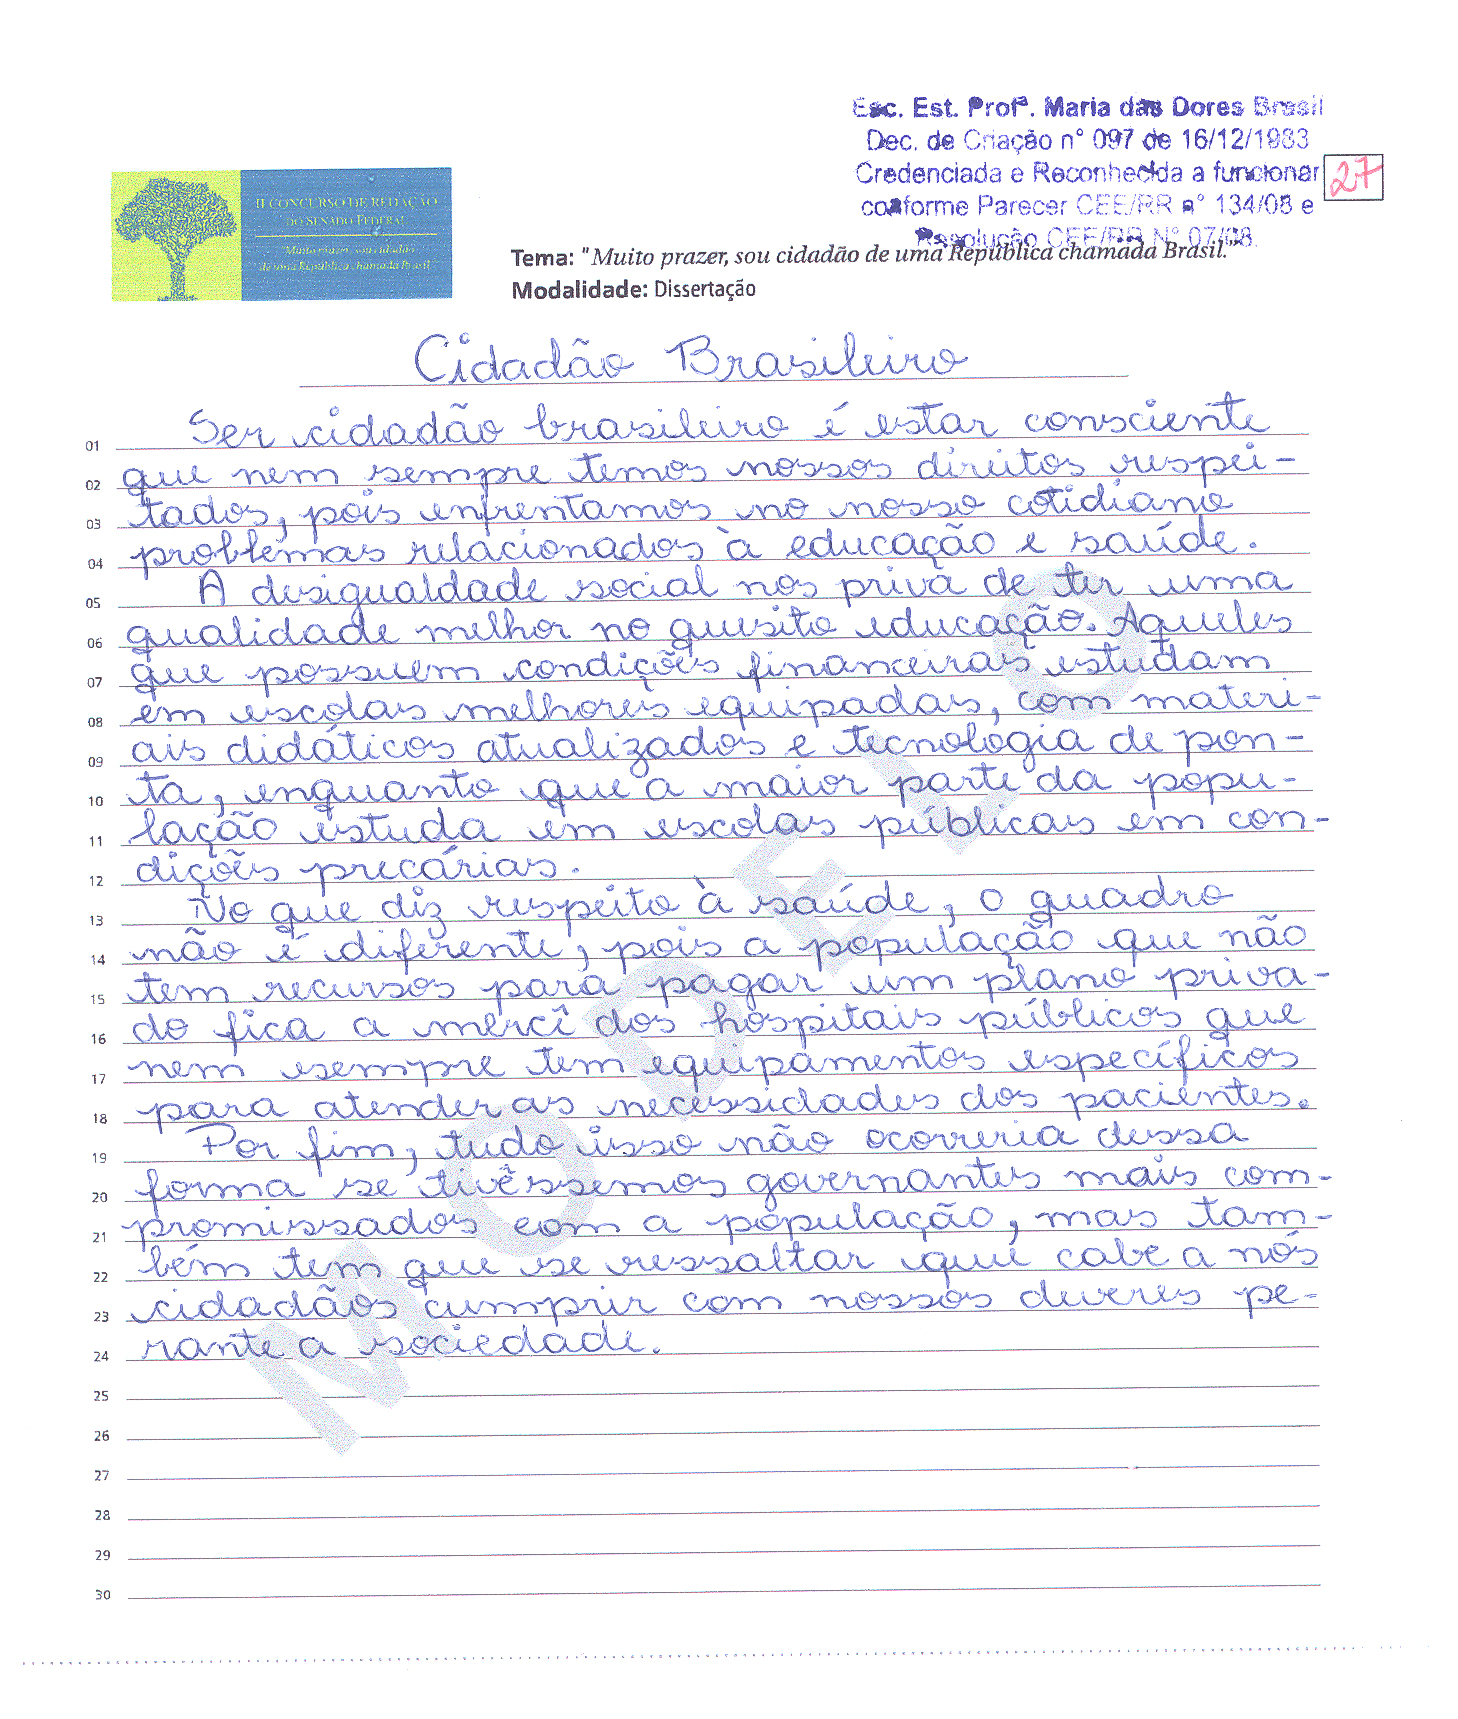 Esc. Est. Profª. Maria das Dores Brasil
Dec. de Criação n° 097 de 16/12/1983
Credenciada e Reconhecida a funcionar
conforme Parecer CEE/RR n° 134/08 e
Resolução CEE/RR N° 07/08.
27
II CONCURSO DE REDAÇÃO
DO SENADO FEDERAL
"Muito prazer, sou cidadão
de uma República chamada Brasil."
Tema: "Muito prazer, sou cidadão de uma República chamada Brasil."
Modalidade: Dissertação
Cidadão Brasileiro
01 Ser cidadão brasileiro é estar consciente
02 que nem sempre temos nossos direitos respei-
03 tados, pois enfrentamos no nosso cotidiano
04 problemas relacionados à educação e saúde.
05 A desigualdade social nos priva de ter uma
06 qualidade melhor no quesito educação. Aqueles
07 que possuem condições financeiras estudam
08 em escolas melhores equipadas, com materi-
09 ais didáticos atualizados e tecnologia de pon-
10 ta, enquanto que a maior parte da popu-
11 lação estuda em escolas públicas em con-
12 dições precárias.
13 No que diz respeito à saúde, o quadro
14 não é diferente, pois a população que não
15 tem recursos para pagar um plano priva-
16 do fica a mercê dos hospitais públicos que
17 nem sempre tem equipamentos específicos
18 para atender as necessidades dos pacientes.
19 Por fim, tudo isso não ocorreria dessa
20 forma se tivêssemos governantes mais com-
21 promissados com a população, mas tam-
22 bém tem que se ressaltar que cabe a nós
23 cidadãos cumprir com nossos deveres pe-
24 rante a sociedade.
25
26
27
28
29
30
MODELO